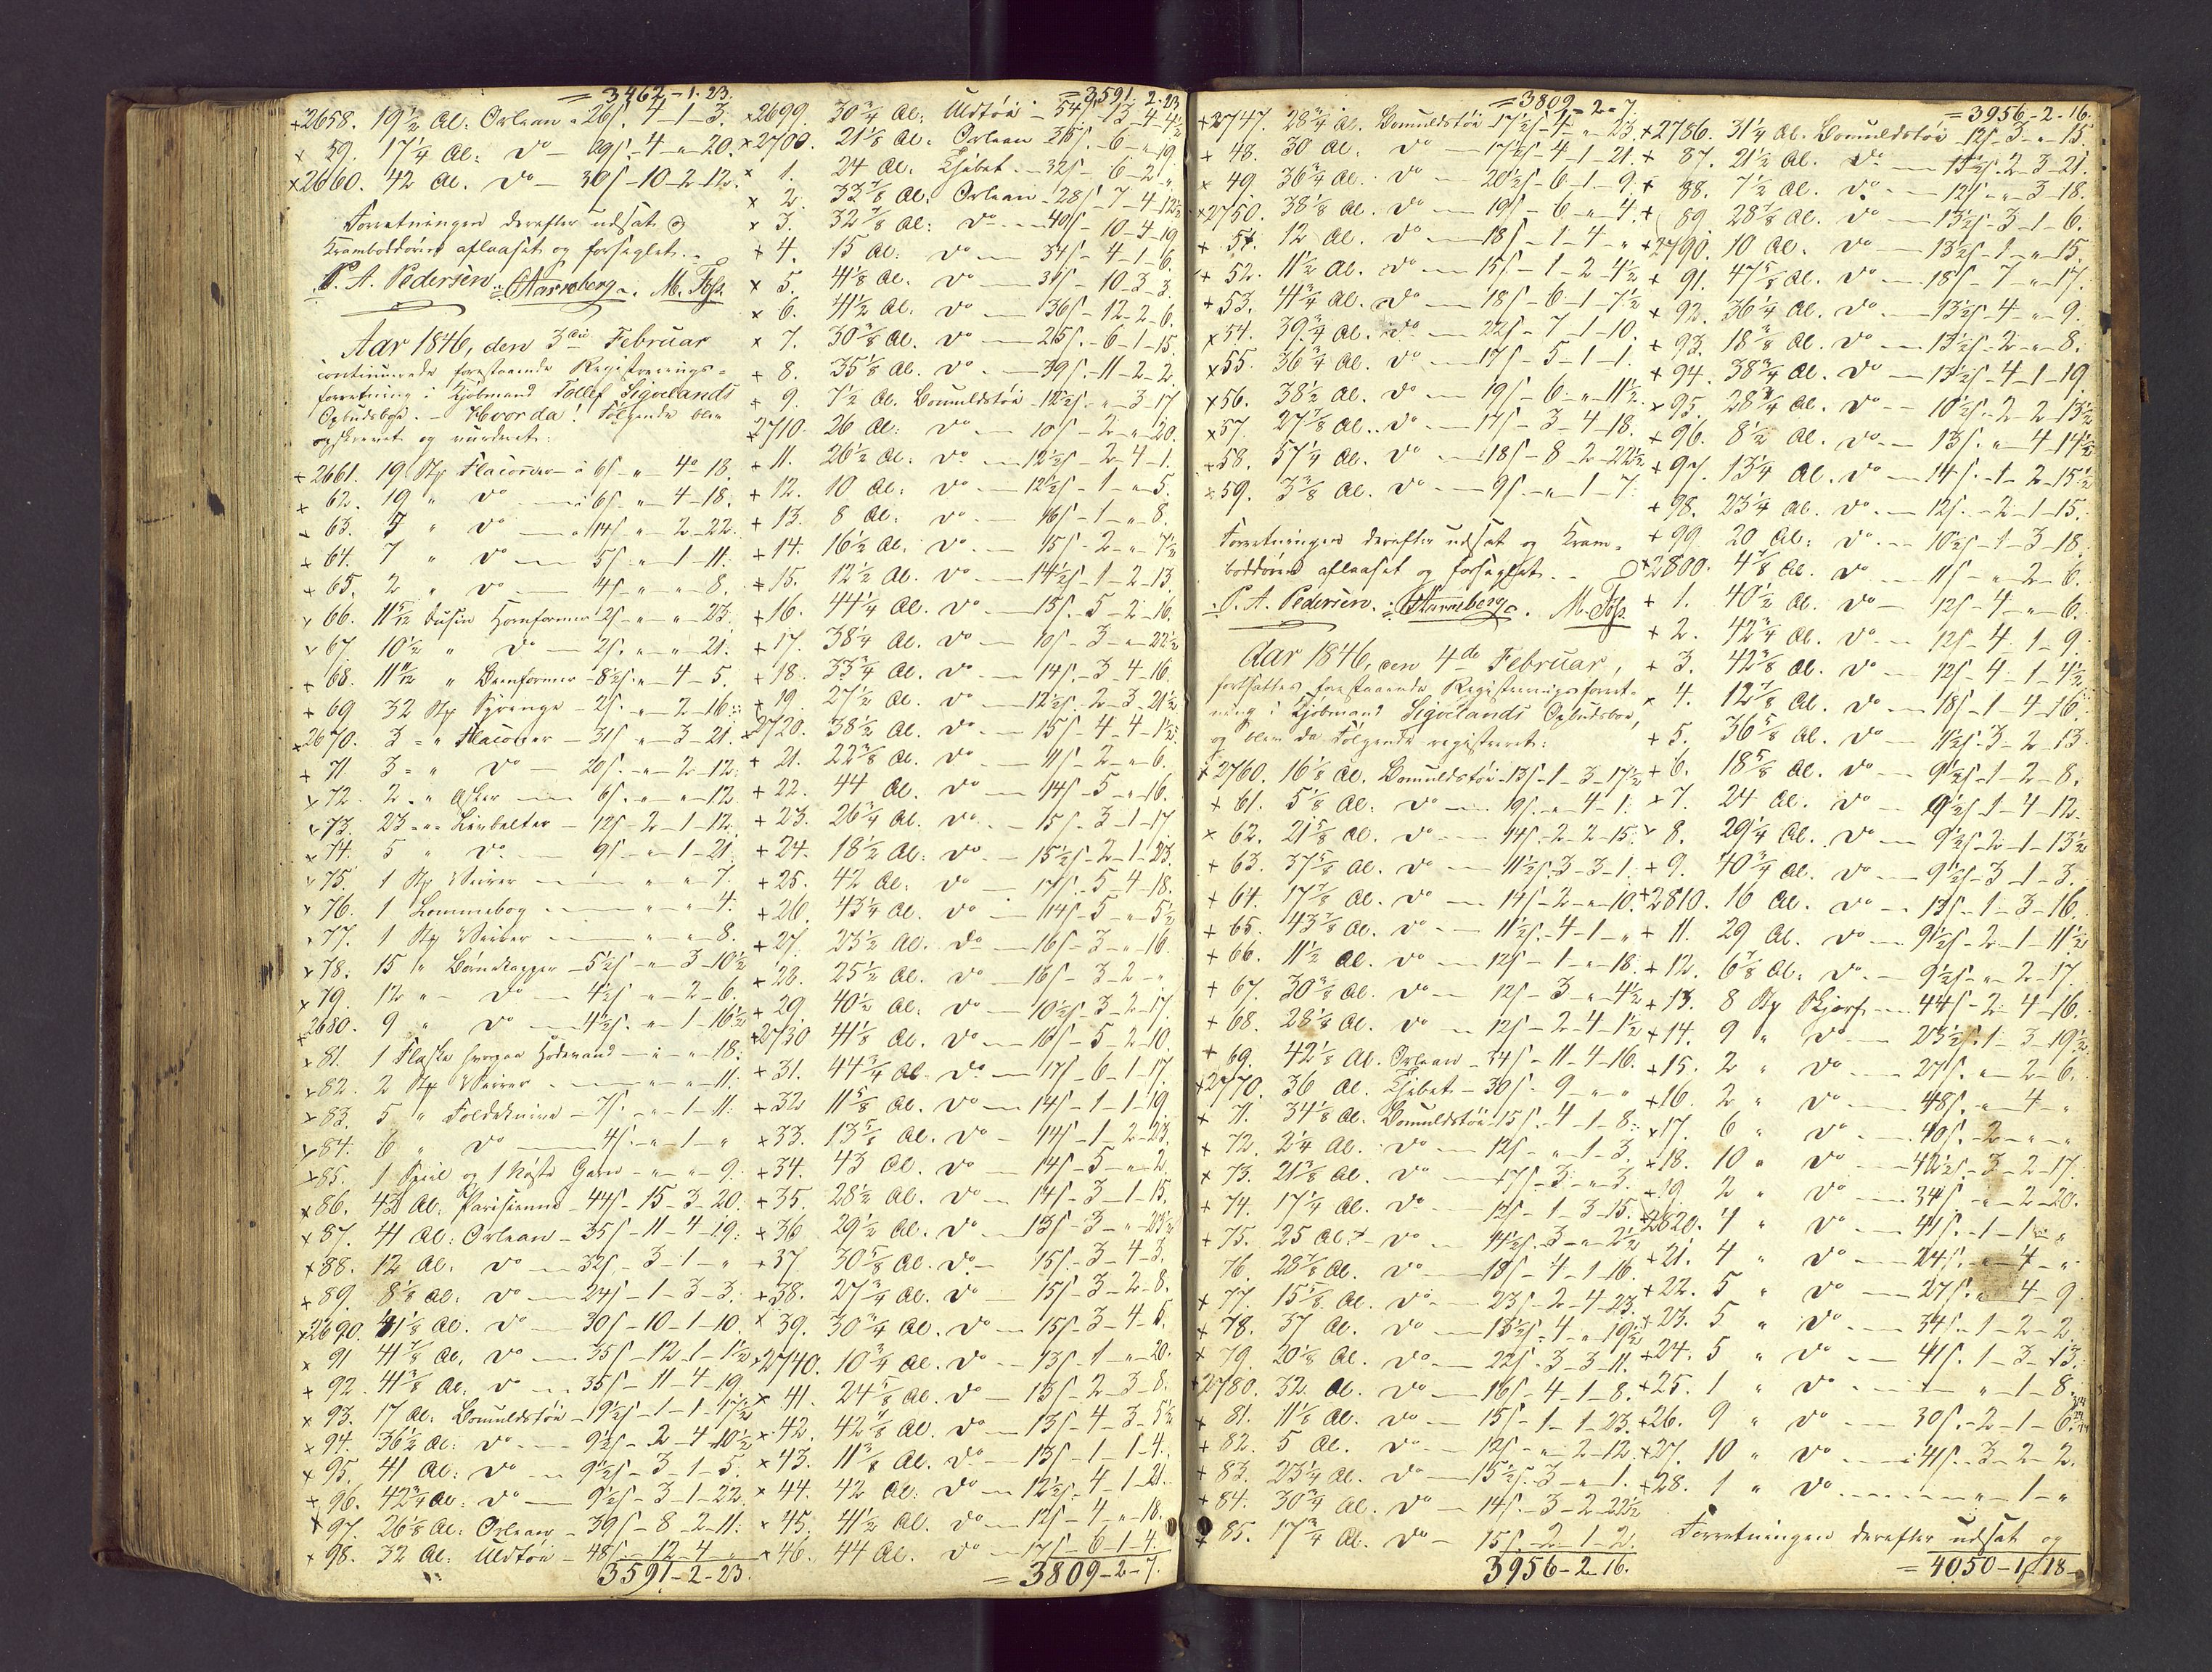 = 3462-1-23.
+2658. 19½ Al: Orlean - 26ß. 4-1-3.
× 59. 17¼ Al: do - 29ß. - 4 - " - 20.
×2660. 42 Al. do - 30ß - 10-2-12.
Forretningen derefter udsat og
Kramboddøren aflaaset og forseglet. -
P. A. Pedersen. M. Foss.
Aar 1846, den 3die Februar
continuerede forestaaende Registrerings-
forretning i Kjøbmand Tollef Sigvelands
Opbudsboe. - Hvorda! Følgende blev
opskrevet og vurderet:
+2661. 19 St Flaconer - à 6ß - " - 4 - 18.
+ 62. 19 " do - à 6ß - " - 4-18.
63. " do - 14ß - " - 2-22.
+ 64. 7 " do - 5ß - " - 1-11.
+ 65. 2 " do - 4ß - " - " - 8.
66. 11 5/12 Dusin Hornformer 2ß - " - " - 23.
67. 10½ " do - 2ß. - " - " - 21.
+ 68. " Beenformer - 8½ß - " - 4-5.
+ 69. 32 St Sprenge - 2ß. - " - 2-16.
2670. 3 " Flaconer - 31ß - " - 3-21.
+ 71. 3 " do - 20ß. - " - 2-12.
72. 2 " Æsker - 6ß. - " - " - 12.
73. 23 " Livbelter - 12ß - 2-1-12.
74. 5 " do - 9ß - " - 1-21.
75. 1 St - " - " - 7.
76. 1 Lommebog - " - " - 4.
77. 1 St - " - " - 8.
78. 15 " Børnekapper - 5½ß - " - 3-10½
79. 12 " do - 4½ß - " - 2-6.
2680. 9 " do - 4½ß. - " - 1-16½
81. 1 Flaske Hovedvand - " - 18.
82. 2 St - " - " - 11.
83. 5 " Foldeknive - 7ß. - " - 1-11.
84. 6 " do - 4ß. - " - 1 - "
85. 1 og 1 Garn - " - " - 9.
× 86. 43 Al. Parisienne - 44ß - 15-3-20.
× 87. 41 Al: Orlean - 35ß - 11-4-19.
×88. 12 Al. do - 32ß - 3-1 - "
+ 89. 8⅛ Al. do - 24ß - 1-3-3.
×2690. 41⅛ Al. do - 30ß - 10-1-10.
× 91. 41⅞ Al. do - 35ß - 12-1-1½
+ 92. 41⅜ Al. do - 35ß - 11-4-19.
× 93. 17 Al: Bomuldstøi - 19½ß - 1-1-17½
+ 94. 36½ Al: do - 9½ß - 2-4-10½
× 95. 41 Al: do - 9½ß - 3-1-5.
+ 96. 42¾ Al: do - 9½ß - 3-1-22.
97. 26⅛ Al: Orlean - 39ß - 8-2-11.
× 98. 32 Al: Uldtøi - 48ß - 12-4 - "
3591-2-23.
= 3591-2-23
×2699. 30¾ Al: Uldtøi - 54ß. 13-4-4½
×2700. 21⅛ Al: Orlean - 35ß - 6 - " - 19.
× 1. 24 Al. Thibet - 32ß - 6-2 - "
× 2. 33⅞ Al. Orlean - 28ß - 7-4-12½
× 3. 32⅞ Al: do - 40ß - 10-4-19.
+ 4. 15 Al: do - 34ß - 4-1-6.
× 5. 41⅛ Al. do - 31ß - 10-3-3.
× 6. 41½ Al. do - 36ß - 12-2-6.
× 7. 30⅜ Al. do - 25ß. - 6-1-15.
+ 8. 35⅛ Al. do - 39ß. - 11-2-2.
+ 9. 7½ Al. Bomuldstøi - 12½ß. - " - 3-17.
×2710. 26 Al: do - 10ß - 2 - " - 20.
+ 11. 26½ Al: do - 12½ß - 2-4-1.
+ 12. 10 Al: do - 12½ß - 1 - " - 5.
+ 13. 8 Al: do - 16ß - 1 - " - 8.
+ 14. 16½ Al. do - 15ß - 2 - " - 7½
+ 15. 12½ Al. do - 14½ß - 1-2-13.
+ 16. 44¼ Al. do - 15ß. - 5-2-16.
+ 17. 38¼ Al. do - 10ß - 3 - " - 22½
+ 18. 33¾ Al. do - 14ß. - 3-4-16.
+ 19. 27½ Al. do - 12½ß. - 2-3-21½
×2720. 38½ Al. do - 15ß - 4-4-1½
+ 21. 22⅜ Al. do - 11ß - 2 - " - 6.
+ 22. 44 Al. do - 14ß - 5 - " - 16.
+ 23. 26¾ Al. do - 15ß. - 3-1-17
+ 24. 18½ Al: do - 15½ß - 2-1-23.
+ 25. 42 Al: do - 17ß. - 5-4-18.
+ 26. 43¼ Al. do - 14ß - 5 - " - 5½
+ 27. 23½ Al. do - 16ß - 3 - " - 16
+ 28. 25½ Al. do - 16ß - 3-2 - "
+ 29. 40½ Al: do - 10½ß - 3-2-17.
×2730 41⅛ Al. do - 16ß - 5-2-10.
+ 31. 44¾ Al. do - 17ß - 6-1-17.
+ 32 11⅝ Al. do - 14ß - 1-1-19.
×33. 13⅝ Al. do - 14ß - 1-2-23.
+34. 43 Al. do - 14ß - 5 - " - 2.
+35. 28½ Al. do - 14ß - 3-1-15.
×36 29½ Al. do - 13ß - 3 - " - 23½
+37. 30⅝ Al. do - 15ß. - 3-4-3.
+38. 27¾ Al. do - 15ß - 3-2-8.
× 39. 30¾ Al. do - 15ß - 3-4-5.
×2740. 10¾ Al. do - 13ß - 1 - " - 20.
× 41. 24⅝ Al. do - 13ß - 2-3-8.
×42. 42⅞ Al. do - 13ß - 4-3-5½
×43. 11⅜ Al. do - 13ß - 1-1-4.
× 44. 42 Al. do - 12½ß. 4-1-21.
× 45. 41½ Al. do - 12ß - 4 - " - 18.
×46. 44 Al. do - 17ß - 6-1-4.
= 3809-2-7.
= 3809-2-7.
+2747. 28¾ Al. Bomuldstøi - 17½ß - 4 - " - 23.
+ 48. 30 Al. do - 17½ß - 4-1-21.
× 49. 36¾ Al. do - 20½ß - 6-1-9.
×2750. 38⅛ Al. do - 19ß - 6 - " - 4.
+ 51. 12 Al. do - 18ß - 1-4 - "
+ 52. 11½ Al. do - 15ß - 1-2-4½
+ 53. 41¾ Al. do - 18ß - 6-1-7½
×54. 39¾ Al. do - 22ß - 7-1-10.
×55. 36¾ Al. do - 17ß - 5-1-1.
×56. 38½ Al. do - 19ß - 6 - " - 11½
×57. 27⅞ Al. do - 17ß - 3-4-18.
+58. 57¼ Al. do - 18ß - 8-2-22½
×59. 3⅜ Al. do - 9ß - " - 1-7.
Forretningen derefter udsat og Kram-
boddøren aflaaset og forseglet. -
P. A. Pedersen. M. Foss.
Aar 1846, den 4de Februar,
fortsattes forestaaende Registreringsforret-
ning i Kjøbmand Sigvelands Opbudsboe,
og blev da Følgende registreret:
×2760. 16⅛ Al. Bomuldstøi - 13ß - 1-3-17½
+ 61. 5⅛ Al: do - 19ß. - " - 4-1.
× 62. 21⅝ Al. do - 14ß - 2-2-15.
+ 63. 37⅝ Al. do - 11½ß. 3-3-1.
+ 64. 17⅞ Al. do - 14ß - 2 - " - 10.
+ 65. 43⅞ Al. do - 11½ß. - 4-1 - "
+ 66. 11½ Al. do - 12ß - 1 - " - 18.
+ 67. 30⅜ Al. do - 12ß - 3 - " - 4½
+ 68. 28⅛ Al. do - 12ß - 2-4-1½
+ 69. 42⅛ Al. Orlean - 34ß - 11-4-16.
×2770. 36 Al. Thibet - 30ß. 9 - " - "
× 71. 34⅛ Al. Bomuldstøi - 15ß. - 4-1-8.
+ 72. 2¼ Al. do - 12ß - " - 1-3.
× 73. 21⅜ Al. do - 17ß - 3 - " - 3.
+ 74. 17¼ Al. do - 12ß - 1-3-15.
+ 75. 25 Al. do - 14½ß. - 3 - " - 2½
76. 28⅞ Al. do - 18ß - 4-1-16.
× 77. 15⅝ Al. do - 23ß - 2-4-23.
× 78. 37 Al. do - 13½ß. 4 - " - 19½
× 79. 20⅛ Al. do - 22ß. - 3-3-11.
×2780. 32 Al. do - 16ß - 4-1-8.
× 81. 11⅛ Al. do - 15ß - 1-1-23.
+ 82. 5 Al. do - 12ß - " - 2-12.
+ 83. 23¼ Al. do - 15½ß. 3 - " - 1.
+ 84. 30¾ Al. do - 14ß. - 3-2-22½
+ 85. 17¾ Al. do - 15ß. 2-1-2.
3956-2-16.
= 3956-2-16.
×2786. 31¼ Al. Bomuldstøi - 12ß - 3 - " - 15.
+ 87. 21½ Al. do - 15½ß. 2-3-21.
+ 88. 7½ Al. do - 12ß - " - 3-18.
+ 89. 28⅞ Al. do - 13½ß - 3-1-6.
+2790. 10 Al. do - 13½ß - 1 - " - 15.
+ 91. 47⅝ Al. do - 18ß - 7 - " - 17.
× 92. 36¼ Al. do - 13½ß. 4 - " - 9.
+ 93. 18⅜ Al. do - 13½ß - 2 - " - 8.
+ 94. 38¾ Al. do - 13½ß - 4-1-19
×95. 28¾ Al. do - 10½ß - 2-2-13½
+96. 8½ Al. do - 13ß. " - 4-14½
+ 97. 13¼ Al. do - 14ß. - 1-2-15½
+98. 23¼ Al. do - 12ß. - 2-1-15.
+ 99. 20 Al: do - 10½ß - 1-3-18.
+2800. 4⅞ Al. do - 11ß - " - 2-6.
+ 1. 40½ Al. do - 12ß - 4 - " - 6.
+ 2. 42¾ Al. do - 12ß - 4-1-9.
+ 3. 42⅜ Al. do - 12ß - 4-1-4½
× 4. 12⅞ Al. do - 18ß - 1-4-16
+ 5. 36⅝ Al. do - 11½ß. 3-2-13
+ 6. 18⅝ Al. do - 9½ß - 1-2-8.
+ 7. 24 Al. do - 9½ß - 1-4-12.
8. 29¼ Al. do - 9½ß - 2-1-13½
+ 9. 40¾ Al. do - 9½ß - 3-1-3.
+2810. 16 Al. do - 13ß - 1-3-16.
+ 11. 29 Al. do - 9½ß - 2-1-11½
+ 12. 6⅞ Al: do - 9½ß - " - 2-17.
+ 13. 8 St Skjørt - 44ß - 2-4-16.
+ 14. 9 " do - 23½ß - 1-3-19½
+15. 2 " do - 27ß. - " - 2-6.
+16. 2 " do - 48ß. - " - 4 - "
×17. 6 " do - 40ß. - 2 - " - "
+18. 10 " do - 42½ß. - 3-2-17.
+19. 2 " do - 34ß. - " - 2-20.
+2820. 4 " do - 41ß. - 1-1 - "
+21. 4 " do - 24ß. - " - 4 - "
+22. 5 " do - 27ß. " - 4-9
+23. 5 " do - 34ß - 1-2-2.
+24. 5 " do - 41ß. 1-3-13.
+25. 1 " do - " - 1-8.
+26. 9 " do - 30ß. - 2-1-6.
+27. 10 " do - 41ß. - 3-2-2.
+28. 1 " do - " - 1 - "
Forretningen derefter udsat og
= 4050-1-18